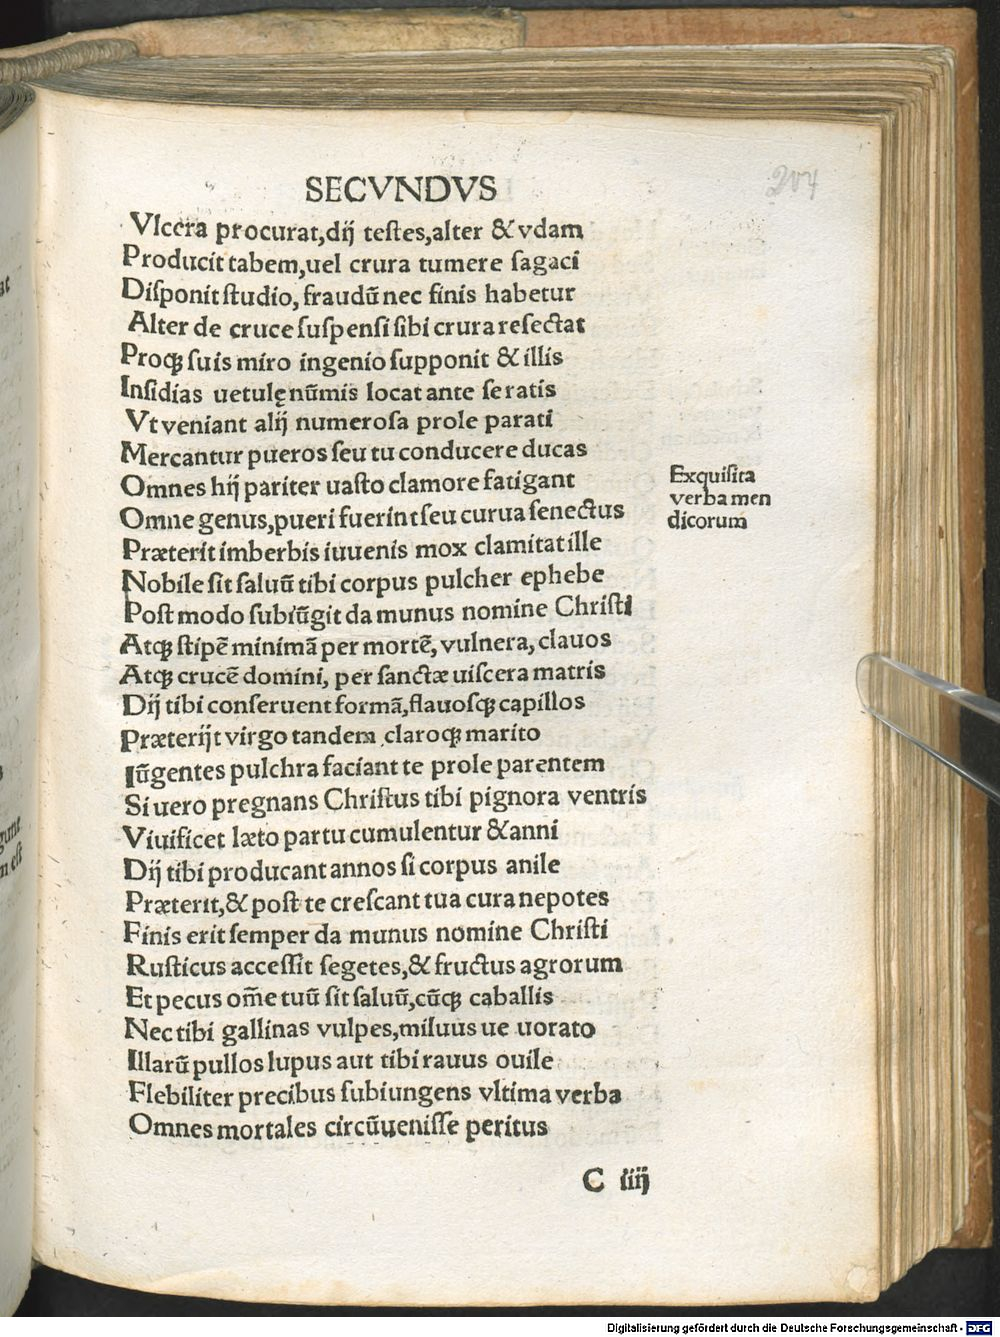 SECVNDVS
204
Vlcera procurat,dij testes,alter & vdam
Producit tabem,uel crura tumere sagaci
Disponit studio, fraudũ nec finis habetur
Alter de cruce suspensi sibi crura resectat
Proqꝫ suis miro ingenio supponit & illis
Insidias uetulę nũmis locat ante seratis
Vt veniant alij numerosa prole parati
Mercantur pueros seu tu conducere ducas
Omnes hij pariter uasto clamore fatigant
Omne genus,pueri fuerint seu curua senectus
Præterit imberbis iuuenis mox clamitat ille
Nobile sit saluũ tibi corpus pulcher ephebe
Post modo subiũgit da munus nomine Christi
Atqꝫ stipẽ minimã per mortẽ, vulnera, clauos
Atqꝫ crucẽ domini, per sanctæ uiscera matris
Dij tibi conseruent formã,flauosqꝫ capillos
Præterijt virgo tandem claroqꝫ marito
Iũgentes pulchra faciant te prole parentem
Si uero pregnans Christus tibi pignora ventris
Viuificet læto partu cumulentur & anni
Dij tibi producant annos si corpus anile
Præterit,& post te crescant tua cura nepotes
Finis erit semper da munus nomine Christi
Rusticus accessit segetes,& fructus agrorum
Et pecus om̃e tuũ sit saluũ,cũqꝫ caballis
Nec tibi gallinas vulpes,miluus ue uorato
Illarũ pullos lupus aut tibi rauus ouile
Flebiliter precibus subiungens vltima verba
Omnes mortales circũuenisse peritus
Exquisita
verba men
dicorum
C iiij
Digitalisierung gefördert durch die Deutsche Forschungsgemeinschaft - DFG